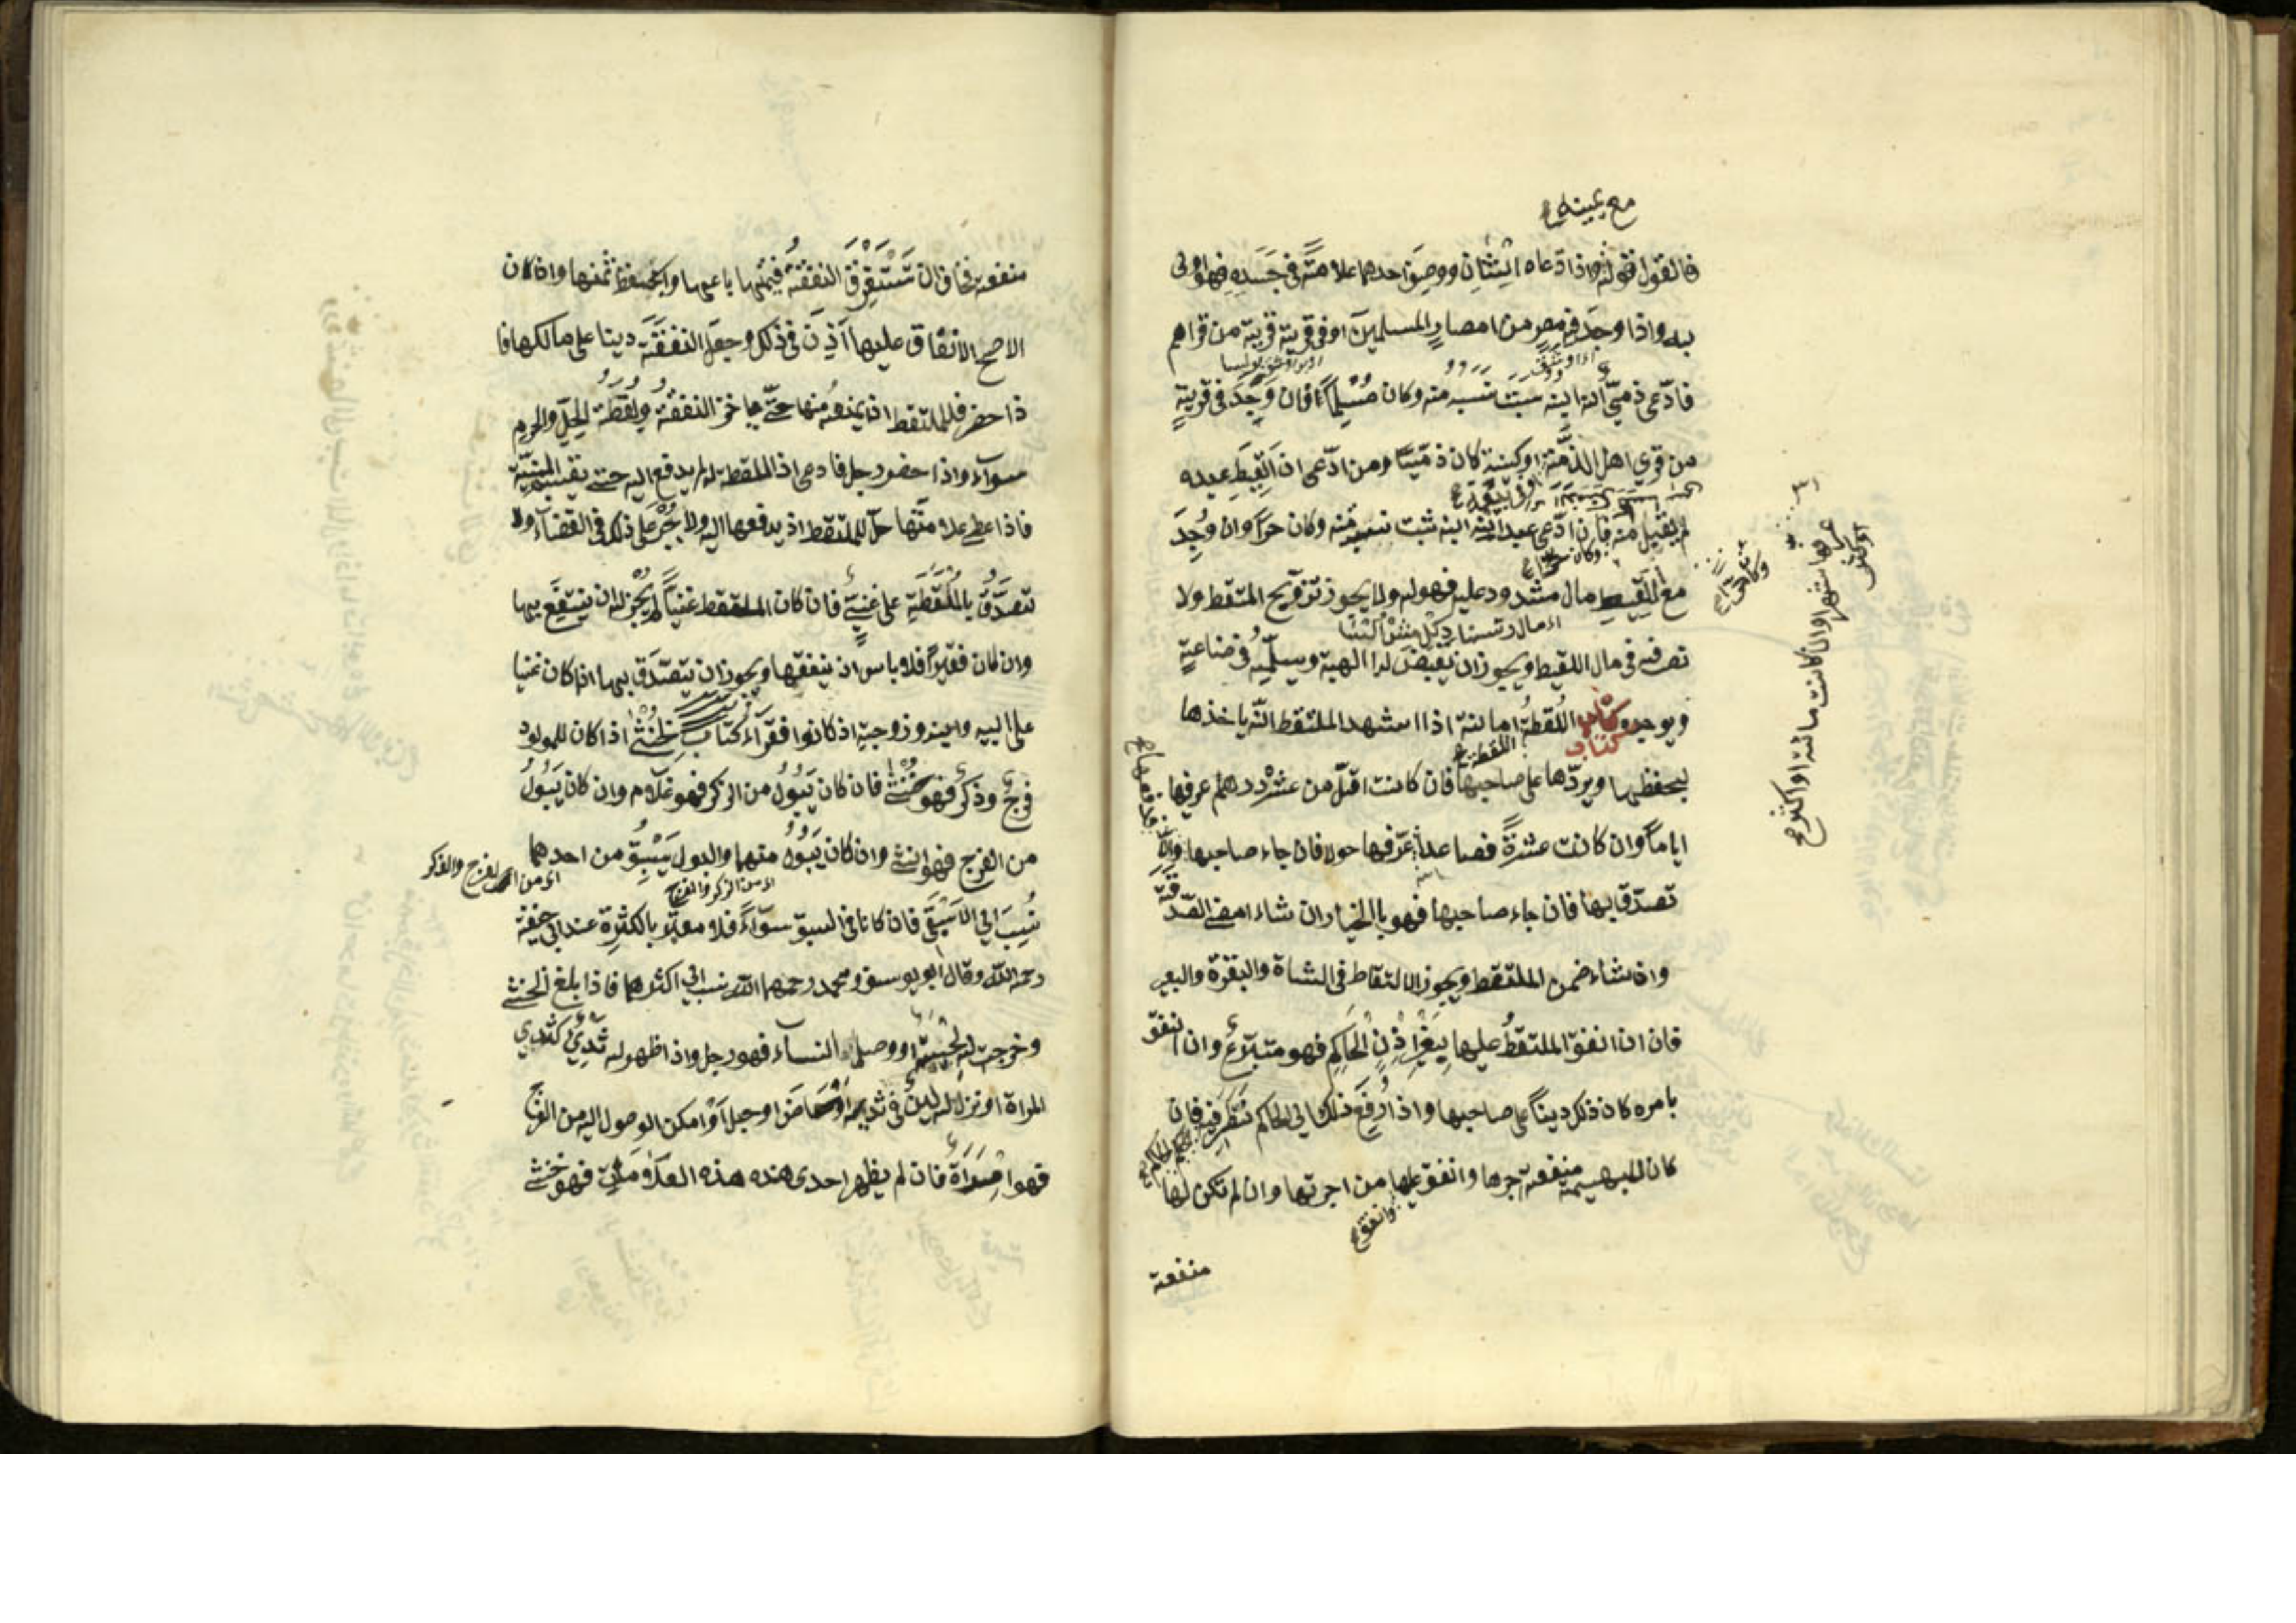 مع يمينه
فالقول قوله واذا ادعاه اثنان ووصف احدهما علامة في جسده فهو اولى
به واذا وجد في مصر من امصار المسلمين او في قرية من قراهم
فادعى ذمي انه ابنه ثبت نسبه منه وكان مسلما فان وجد في قرية
من قرى اهل الذمة او كنيسة كان ذميا ومن ادعى ان اللقيط عبده
او في بيعة
لم يقبل منه فان ادعى عبد انه ابنه ثبت نسبه منه وكان حرا وان وجد
مع اللقيط مال مشدود عليه فهو له ولا يجوز تزويج الملتقط ولا
تصرفه في مال اللقيط ويجوز ان يقبض له الهبة ويسلمه في صناعة
ويوجره كتاب اللقطة امانة اذا اشهد الملتقط انه ياخذها
كتاب اللقطة
ليحفظها ويردها على صاحبها فان كانت اقل من عشر دراهم عرفها
اياما وان كانت عشرة فصاعدا عرفها حولا فان جاء صاحبها والا
تصدق بها فان جاء صاحبها فهو بالخيار ان شاء امضى الصدقة
وان شاء ضمن الملتقط ويجوز الالتقاط في الشاة والبقرة والبعير
فان انفق الملتقط عليها بغير اذن الحاكم فهو متبرع وان انفق
بامره كان ذلك دينا على صاحبها واذا رفع ذلك الى الحاكم نظر فيه فان
كان للبهيمة منفعة اجرها وانفق عليها من اجرتها وان لم تكن لها
وانفق
منفعة
عرفها شهرا وان كانت مائة او اكثر
منفعة فخاف ان تستغرق النفقة قيمتها باعها واحفظ ثمنها واذا كان
الاصح الانفاق عليها اذن في ذلك وجعل النفقة دينا على مالكها فا
ذا حضر فللملتقط ان يمنعه منها حتى ياخذ النفقة ولقطة الحل والحرم
سواء واذا حضر رجل فادعى ان اللقطة له لم يدفع اليه حتى يقيم البينة
فاذا اعطى علامتها حل للملتقط ان يدفعها اليه ولا يجبر على ذلك في القضاء ولا
تتصدق باللقطة على غني فان كان الملتقط غنيا لم يجز له ان ينتفع بها
وان كان فقيرا فلا باس ان ينفقها ويجوز ان يتصدق بها اذا كان غنيا
على ابيه وابنه وزوجته اذ كانوا فقراء كتاب خنثى اذا كان للمولود
فرج وذكر فهو خنثى فان كان يبول من الذكر فهو غلام وان كان يبول
من الفرج فهو انثى وان كان يبول منهما والبول يسبق من احدهما
اى من الذكر والفرج
نسب الى الاسبق فان كانا في السبق سواء فلا معتبر بالكثرة عند ابي حنيفة
رحمه الله وقال ابو يوسف ومحمد رحمهما الله ينسب الى اكثرهما فاذا بلغ الخنثى
وخرجت له لحية او وصل الى النساء فهو رجل واذا ظهر له ثدي كثدي
المراة او نزل له لبن في ثدييه او حاض او حبل او امكن الوصول اليه من الفرج
فهو امراة فان لم يظهر احدى هذه هذه العلامات فهو خنثى